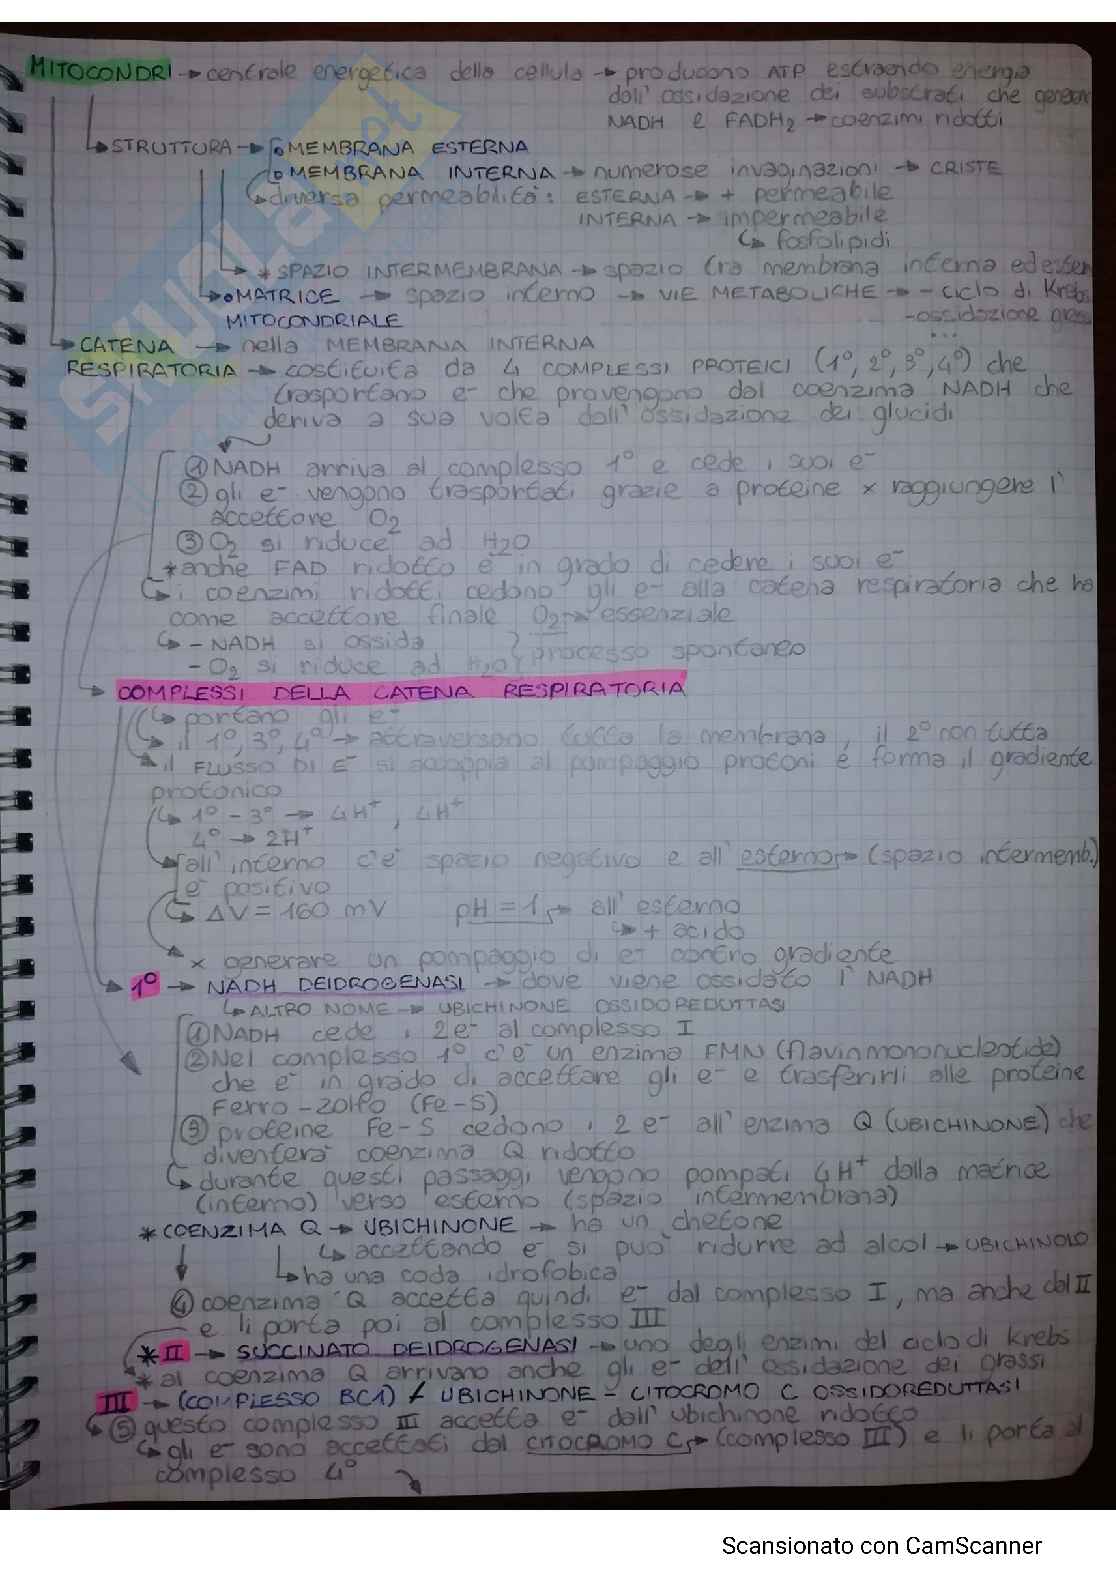 MITOCONDRI → centrale energetica della cellula → producono ATP estraendo energia
dall'ossidazione dei substrati che generano
NADH e FADH₂ → coenzimi ridotti
STRUTTURA → • MEMBRANA ESTERNA
• MEMBRANA INTERNA → numerose invaginazioni → CRISTE
diversa permeabilità: ESTERNA → + permeabile
INTERNA → impermeabile
↳ fosfolipidi
* SPAZIO INTERMEMBRANA → spazio tra membrana interna ed ester
• MATRICE → spazio interno → VIE METABOLICHE → - ciclo di Krebs
MITOCONDRIALE - ossidazione grassi
...
CATENA → nella MEMBRANA INTERNA
RESPIRATORIA → costituita da 4 COMPLESSI PROTEICI (1°, 2°, 3°, 4°) che
trasportano e⁻ che provengono dal coenzima NADH che
deriva a sua volta dall'ossidazione dei glucidi
① NADH arriva al complesso 1° e cede i suoi e⁻
② gli e⁻ vengono trasportati grazie a proteine x raggiungere l'
accettore O₂
③ O₂ si riduce ad H₂O
* anche FAD ridotto è in grado di cedere i suoi e⁻
↳ i coenzimi ridotti cedono gli e⁻ alla catena respiratoria che ha
come accettore finale O₂ → essenziale
↳ - NADH si ossida
- O₂ si riduce ad H₂O } processo spontaneo
COMPLESSI DELLA CATENA RESPIRATORIA
↳ portano gli e⁻
↳ il 1°, 3°, 4° → attraversano tutta la membrana, il 2° non tutta
il FLUSSO DI E⁻ si accoppia al pompaggio protoni e forma il gradiente
protonico
↳ 1° - 3° → 4H⁺, 4H⁺
4° → 2H⁺
all'interno c'è spazio negativo e all'esterno → (spazio intermemb.)
è positivo
↳ ΔV = 160 mV pH = 1 → all'esterno
↳ + acido
x generare un pompaggio di e⁻ contro gradiente
1° → NADH DEIDROGENASI → dove viene ossidato l'NADH
↳ ALTRO NOME → UBICHINONE OSSIDOREDUTTASI
① NADH cede i 2e⁻ al complesso I
② Nel complesso 1° c'è un enzima FMN (flavinmononucleotide)
che è in grado di accettare gli e⁻ e trasferirli alle proteine
Ferro-zolfo (Fe-S)
③ proteine Fe-S cedono i 2 e⁻ all'enzima Q (UBICHINONE) che
diventerà coenzima Q ridotto
↳ durante questi passaggi vengono pompati 4H⁺ dalla matrice
(interno) verso esterno (spazio intermembrana)
* COENZIMA Q → UBICHINONE → ha un chetone
↳ accettando e⁻ si può ridurre ad alcol → UBICHINOLO
↳ ha una coda idrofobica
④ coenzima Q accetta quindi e⁻ dal complesso I, ma anche dal II
e li porta poi al complesso III
* II → SUCCINATO DEIDROGENASI → uno degli enzimi del ciclo di Krebs
* al coenzima Q arrivano anche gli e⁻ dell'ossidazione dei grassi
III → (COMPLESSO BC1) / UBICHINONE - CITOCROMO C OSSIDOREDUTTASI
↳ ⑤ questo complesso III accetta e⁻ dall'ubichinone ridotto
↳ gli e⁻ sono accettati dal CITOCROMO C → (complesso III) e li porta al
complesso 4°
SKUOLA.net
Scansionato con CamScanner